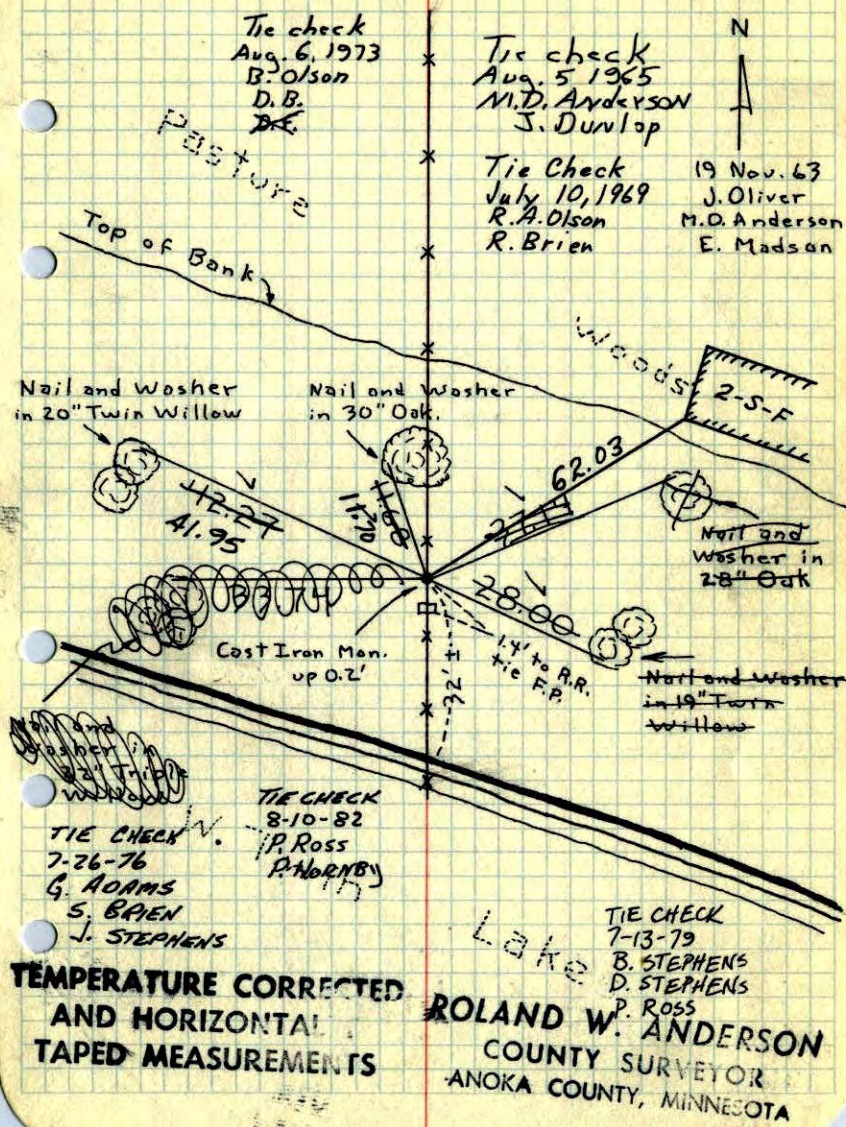 Tie check
Aug. 6, 1973
B. Olson
D.B.
D.E.
Tie check
Aug. 5 1965
M.D. Anderson
J. Dunlop
N
Tie Check
July 10, 1969
R.A. Olson
R. Brien
19 Nov. 63
J. Oliver
M.D. Anderson
E. Madson
Pasture
Top of Bank
Woods
2-S-F
Nail and Washer
in 20" Twin Willow
Nail and Washer
in 30" Oak.
62.03
42.27
41.95
11.70
11.68
Nail and
Washer in
28" Oak
33.74
28.00
Cast Iron Mon.
up 0.2'
1.4' to R.R.
tie F.P.
32' ±
Nail and Washer
in 19" Twin
Willow
Nail and
Washer in
22" Triple
TIE CHECK
7-26-76
G. ADAMS
S. BRIEN
J. STEPHENS
TIE CHECK
8-10-82
P. ROSS
P. HORNBY
W.
Lake
TIE CHECK
7-13-79
B. STEPHENS
D. STEPHENS
P. ROSS
TEMPERATURE CORRECTED
AND HORIZONTAL
TAPED MEASUREMENTS
ROLAND W. ANDERSON
COUNTY SURVEYOR
ANOKA COUNTY, MINNESOTA